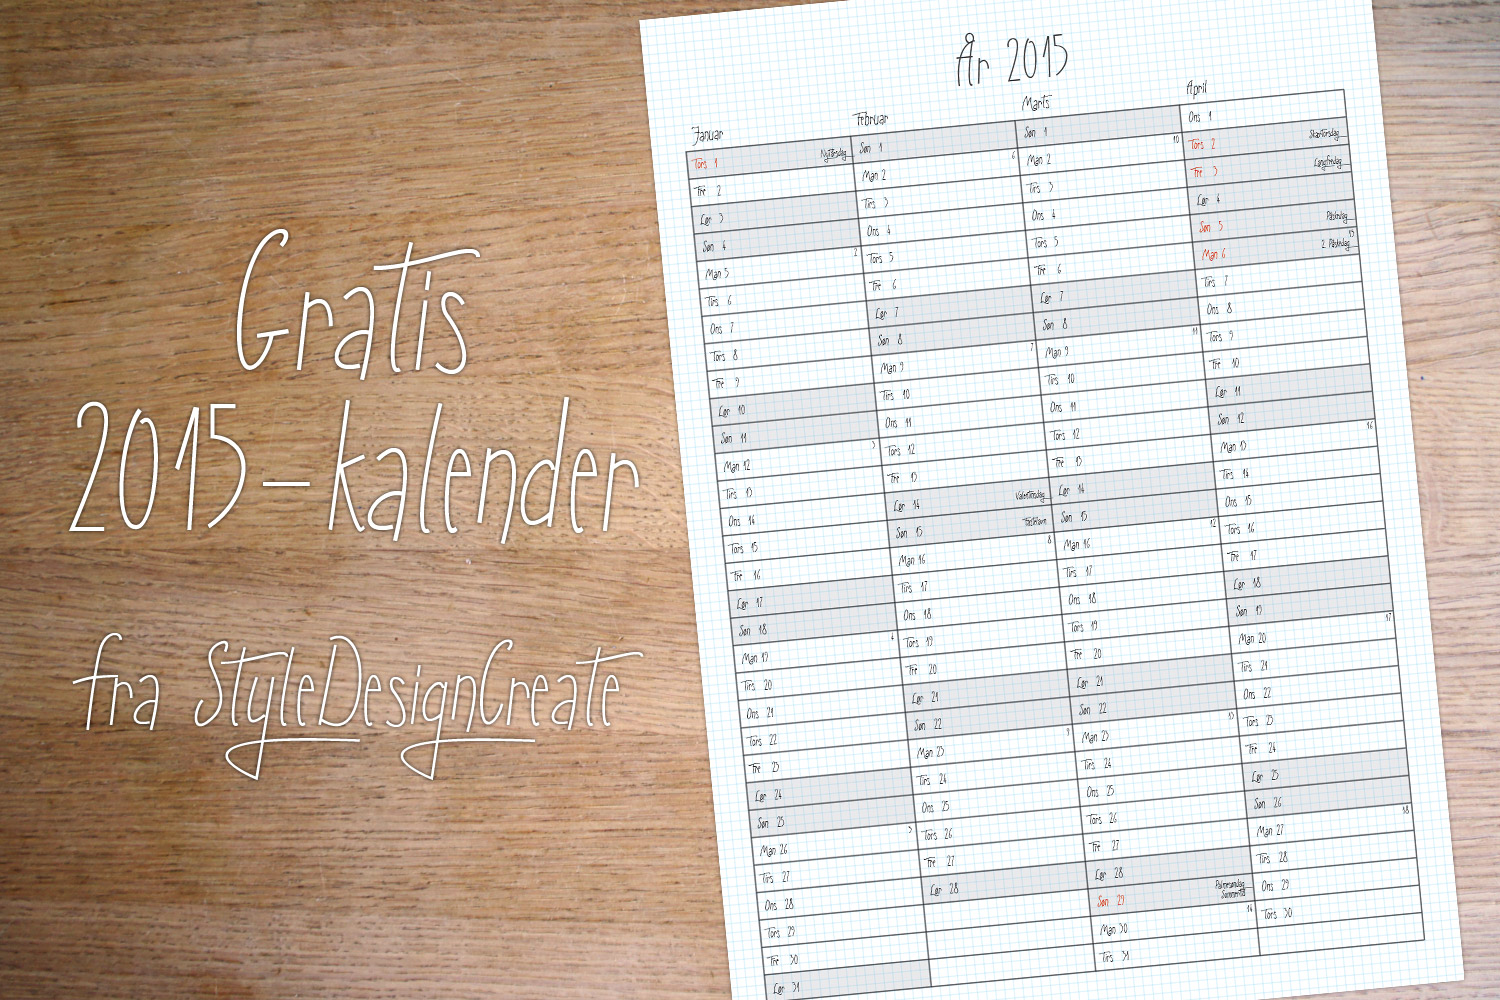 Gratis
2015-kalender
fra StyleDesignCreate
År 2015
Januar
Tors 1 Nytårsdag
Fre 2
Lør 3
Søn 4
Man 5 2
Tirs 6
Ons 7
Tors 8
Fre 9
Lør 10
Søn 11
Man 12 3
Tirs 13
Ons 14
Tors 15
Fre 16
Lør 17
Søn 18
Man 19 4
Tirs 20
Ons 21
Tors 22
Fre 23
Lør 24
Søn 25
Man 26 5
Tirs 27
Ons 28
Tors 29
Fre 30
Lør 31
Februar
Søn 1
Man 2 6
Tirs 3
Ons 4
Tors 5
Fre 6
Lør 7
Søn 8
Man 9 7
Tirs 10
Ons 11
Tors 12
Fre 13
Lør 14 Valentinsdag
Søn 15 Fastelavn
Man 16 8
Tirs 17
Ons 18
Tors 19
Fre 20
Lør 21
Søn 22
Man 23 9
Tirs 24
Ons 25
Tors 26
Fre 27
Lør 28
Marts
Søn 1
Man 2 10
Tirs 3
Ons 4
Tors 5
Fre 6
Lør 7
Søn 8
Man 9 11
Tirs 10
Ons 11
Tors 12
Fre 13
Lør 14
Søn 15
Man 16 12
Tirs 17
Ons 18
Tors 19
Fre 20
Lør 21
Søn 22
Man 23 13
Tirs 24
Ons 25
Tors 26
Fre 27
Lør 28
Søn 29 Palmesøndag
Sommertid
Man 30 14
Tirs 31
April
Ons 1
Tors 2 Skærtorsdag
Fre 3 Langfredag
Lør 4
Søn 5 Påskedag
Man 6 2. Påskedag 15
Tirs 7
Ons 8
Tors 9
Fre 10
Lør 11
Søn 12
Man 13 16
Tirs 14
Ons 15
Tors 16
Fre 17
Lør 18
Søn 19
Man 20 17
Tirs 21
Ons 22
Tors 23
Fre 24
Lør 25
Søn 26
Man 27 18
Tirs 28
Ons 29
Tors 30